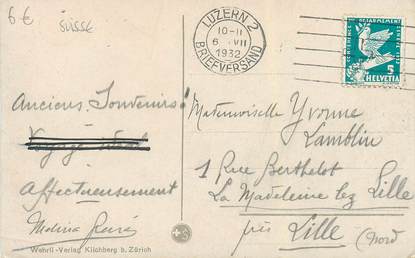 6€ SUISSE
LUZERN 2
10-11
6 VII
1932
BRIEFVERSAND
CONFERENCE DU DESARMEMENT GENEVE 1932
5
HELVETIA
Anciens Souvenirs!
Affectueusement
Mademoiselle Yvonne
Lamblin
1 Rue Berthelot
La Madeleine lez Lille
près Lille (Nord
Wehrli-Verlag Kilchberg b. Zürich